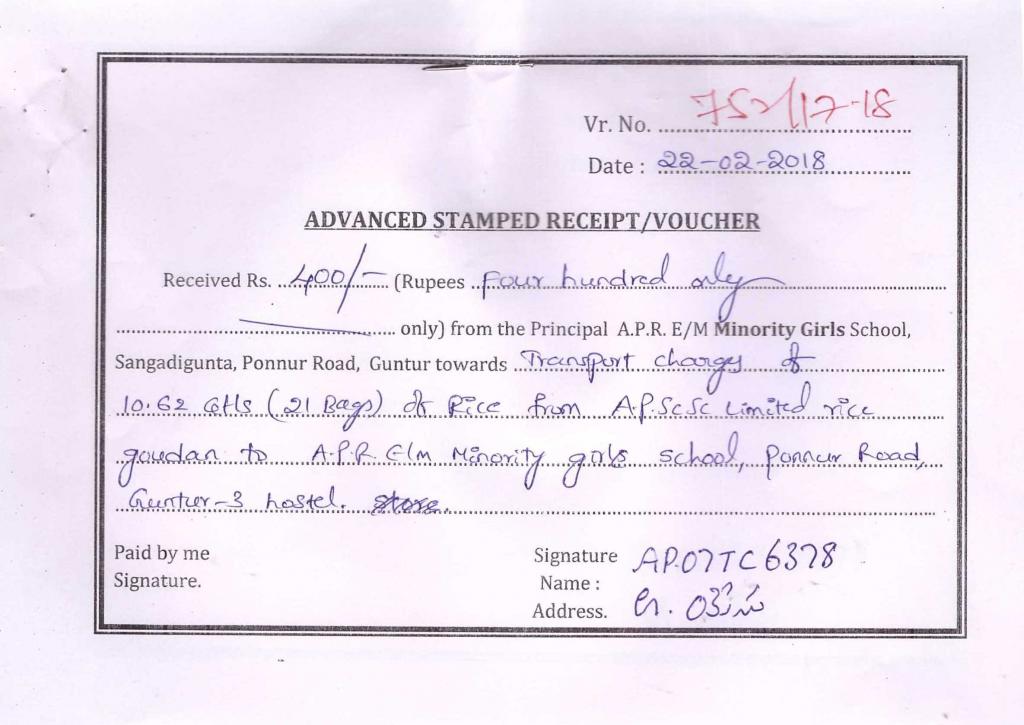 Vr. No. 752/17-18
Date : 22-02-2018
ADVANCED STAMPED RECEIPT/VOUCHER
Received Rs. 400/- (Rupees Four hundred only
only) from the Principal A.P.R. E/M Minority Girls School,
Sangadigunta, Ponnur Road, Guntur towards Transport charges of
10.62 Qtls (21 Bags) of Rice from A.P.ScSc Limited rice
goudan to A.P.R. E/m Minority girls school, ponnur Road,
Guntur-3 hostel. store.
Paid by me
Signature AP.07TC6378
Signature.
Name :
Address.